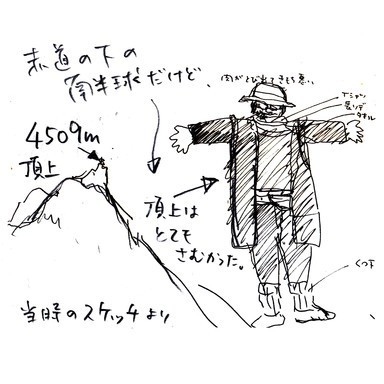 赤道の下の
南半球だけど、
肉がとび出てきもち悪い
Tシャツ
長ソデ
タオル
4509m
頂上
頂上は
とても
さむかった。
くつ下
当時のスケッチより